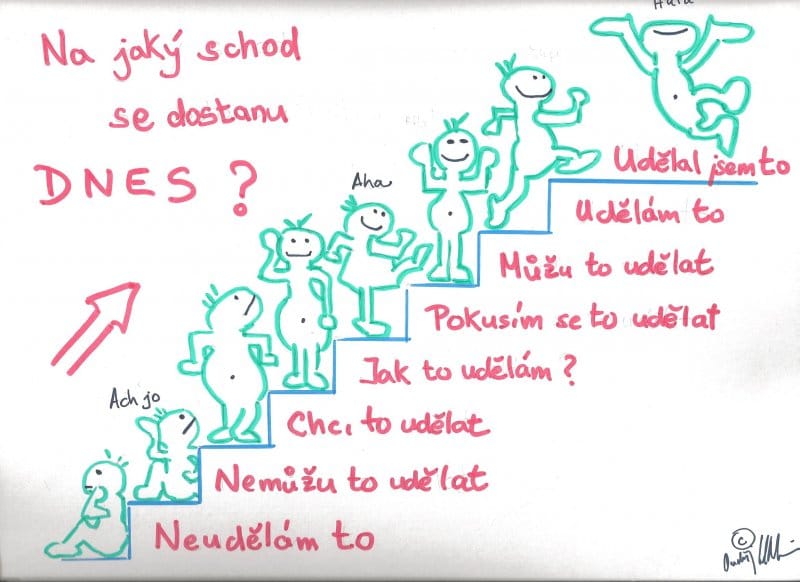 Na jaký schod
se dostanu
DNES?
Udělal jsem to
Udělám to
Můžu to udělat
Pokusím se to udělat
Jak to udělám?
Chci to udělat
Nemůžu to udělat
Neudělám to
Aha
Ach jo
©